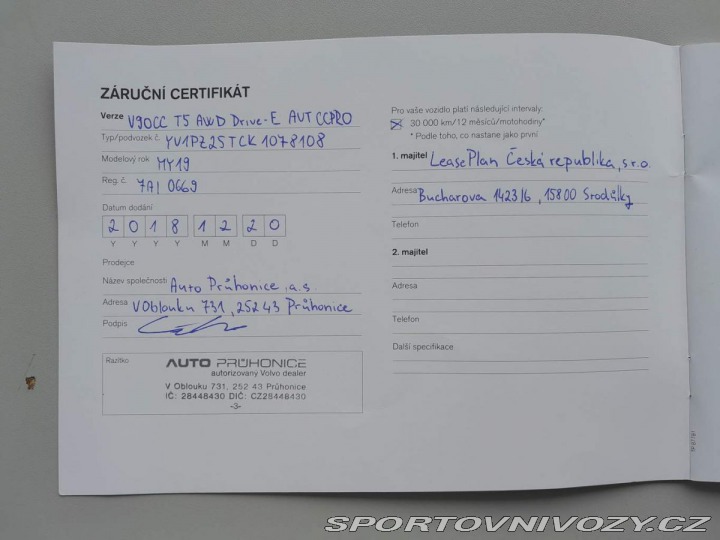 ZÁRUČNÍ CERTIFIKÁT
Verze V90CC T5 AWD Drive-E AUT CCPRO
Typ/podvozek č. YV1PZ25TCK1078108
Modelový rok MY19
Reg. č. 7AI 0669
Datum dodání
2 0 1 8 1 2 2 0
Y Y Y Y M M D D
Prodejce
Název společnosti Auto Průhonice, a.s.
Adresa V Oblouku 731, 252 43 Průhonice
Podpis
Razítko
AUTO PRŮHONICE
autorizovaný Volvo dealer
V Oblouku 731, 252 43 Průhonice
IČ: 28448430 DIČ: CZ28448430
-3-
Pro vaše vozidlo platí následující intervaly:
30 000 km/12 měsíců/motohodiny*
* Podle toho, co nastane jako první
1. majitel LeasePlan Česká republika, s.r.o.
Adresa Bucharova 1423/6, 15800 Stodůlky
Telefon
2. majitel
Adresa
Telefon
Další specifikace
SPORTOVNIVOZY.CZ